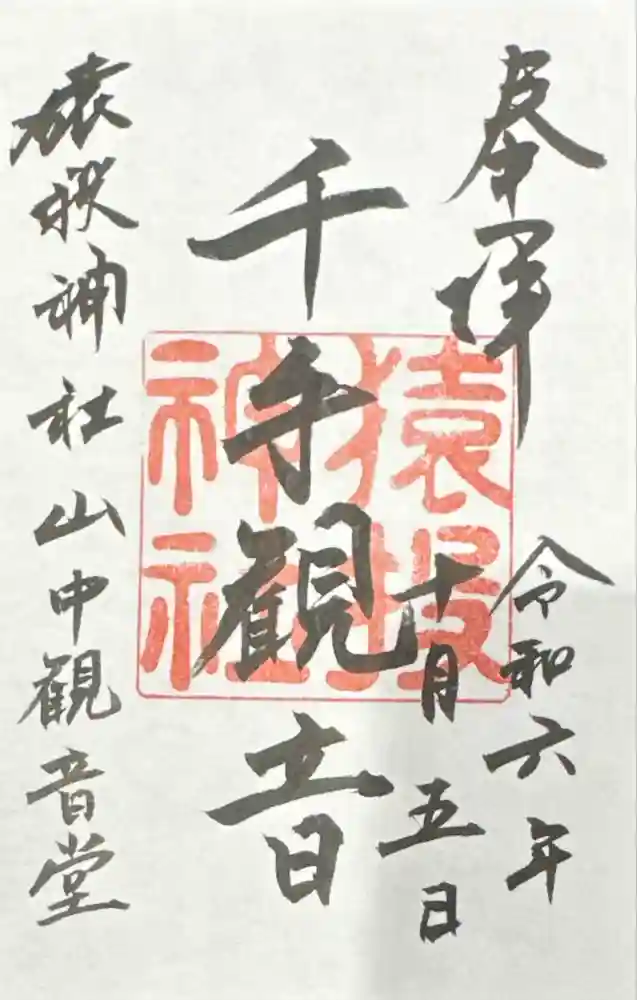 奉拝
令和六年
十月五日
千手観音
猿投
神社
猿投神社山中観音堂